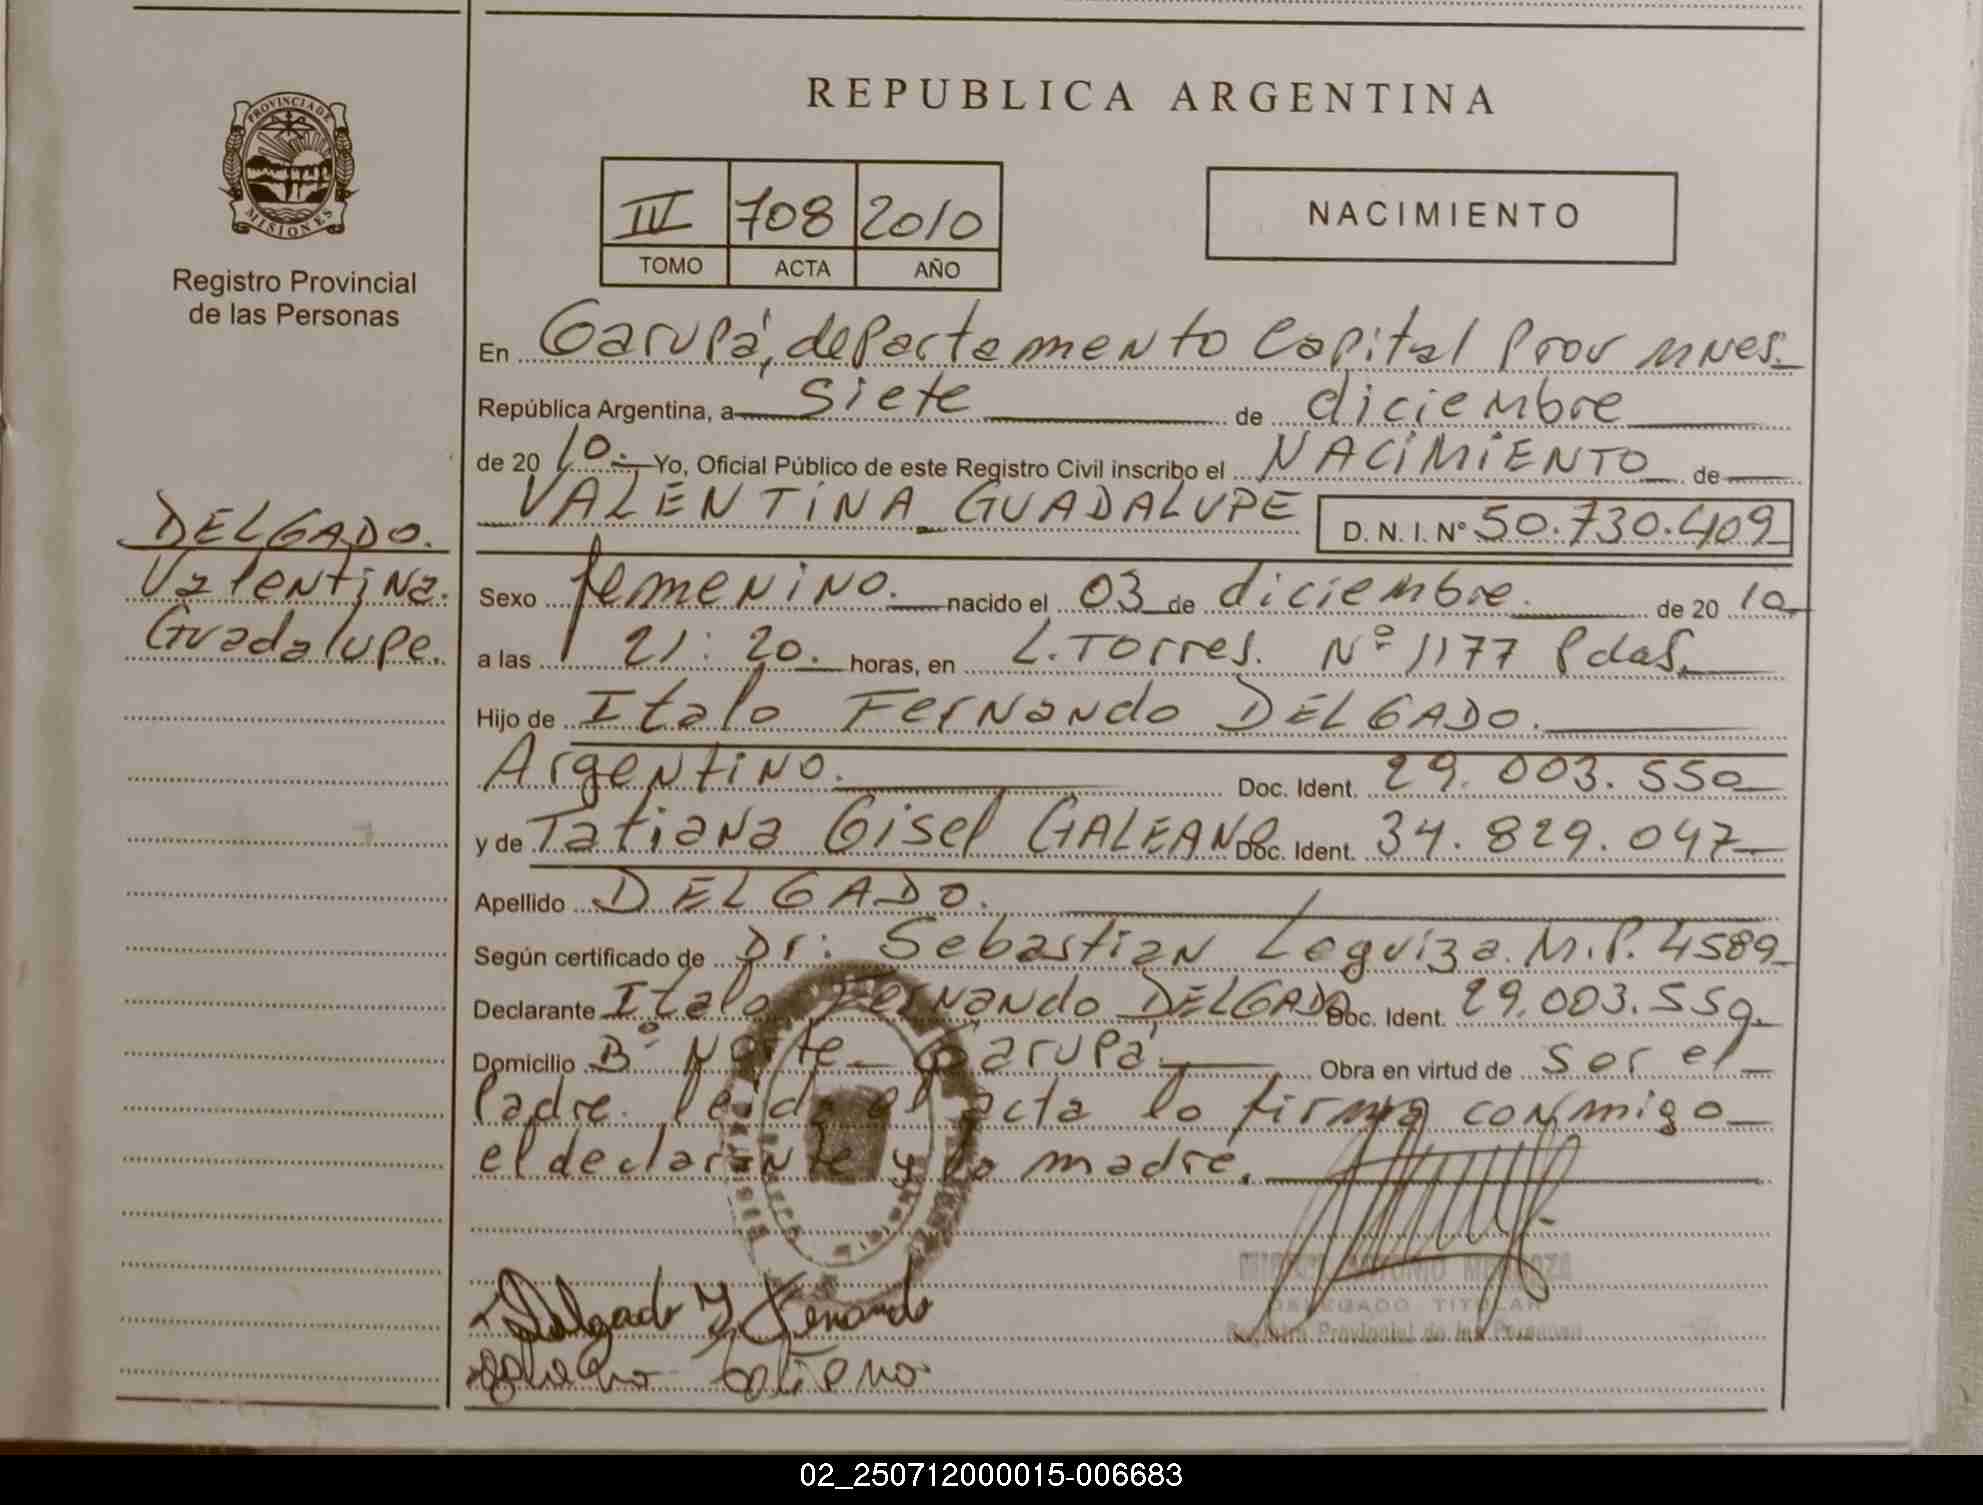 REPUBLICA ARGENTINA
PROVINCIA DE
MISIONES
Registro Provincial
de las Personas
708 2010
TOMO ACTA AÑO
NACIMIENTO
En Garupá, departamento Capital Prov mnes.
República Argentina, a siete de diciembre
de 20 10. Yo, Oficial Público de este Registro Civil inscribo el NACIMIENTO de
VALENTINA GUADALUPE D. N. I. Nº 50.730.409
DELGADO.
Valentina.
Guadalupe.
Sexo femenino. nacido el 03 de diciembre. de 20 10.
a las 21:20. horas, en L. Torres. Nº 1177 Pdas.
Hijo de Italo Fernando DELGADO.
Argentino. Doc. Ident. 29.003.550
y de Tatiana Gisel GALEANO Doc. Ident. 34.829.047
Apellido DELGADO.
Según certificado de Dr: Sebastian Leguiza. M.P. 4589
Declarante Italo Fernando DELGADO Doc. Ident. 29.003.550.
Domicilio Bº Norte Garupá Obra en virtud de ser el
Padre. leída el acta lo firma conmigo
el declarante y la madre.
Delgado I Fernando
DELEGADO TITULAR
Registro Provincial de las Personas
02_250712000015-006683